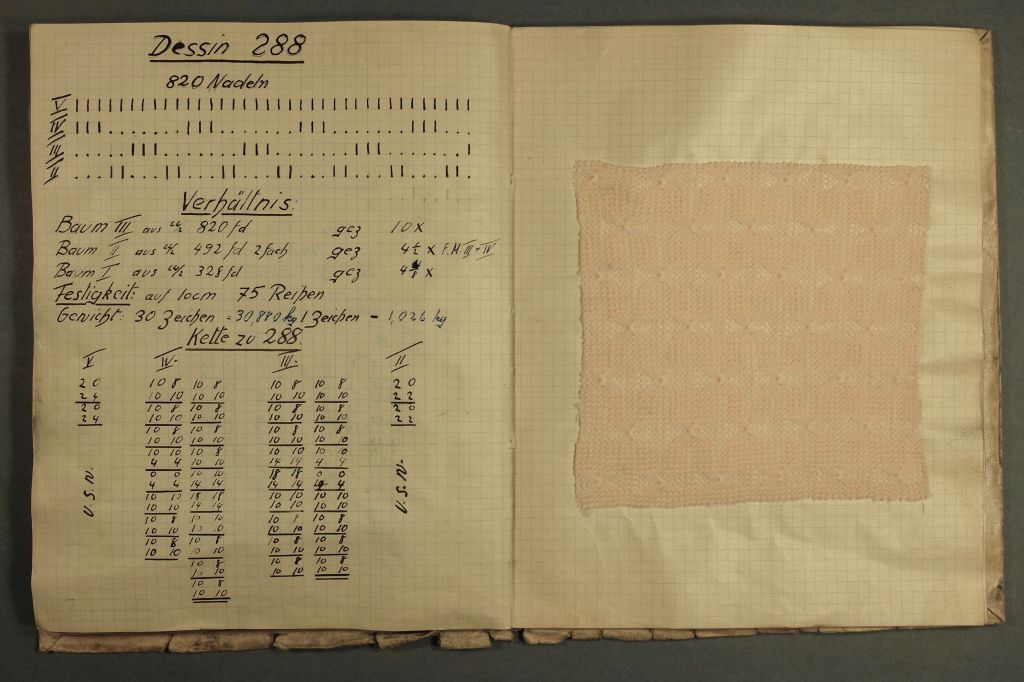 Dessin 288
820 Nadeln
V
IV
III
II
Verhältnis:
Baum III aus 820 fd gez 10 x
Baum II aus 492 fd 2fach gez x F.M III + IV
Baum I aus 328 fd gez x
Festigkeit: auf 10cm 75 Reihen
Gewicht: 30 Zeichen = 30,880 kg 1 Zeichen = 1,026 kg
Kette zu 288.
V IV. III. II
2 0
2 4
2 0
2 4
U.S.W.
10 8
10 10
10 8
10 10
10 8
10 10
10 10
4 4
0 0
4 4
10 10
10 10
10 8
10 10
10 8
10 10
10 8
10 10
10 8
10 10
10 8
10 10
10 8
10 10
14 14
18 18
14 14
10 10
10 8
10 10
10 8
10 10
10 8
10 10
10 8
10 10
10 8
10 10
10 8
10 10
10 10
14 14
18 18
14 14
10 10
10 10
10 8
10 10
10 8
10 10
10 8
10 10
10 8
10 10
10 8
10 10
10 8
10 10
10 10
4 4
0 0
4 4
10 10
10 10
10 8
10 10
10 8
10 10
10 8
10 10
2 0
2 2
2 0
2 2
U.S.W.